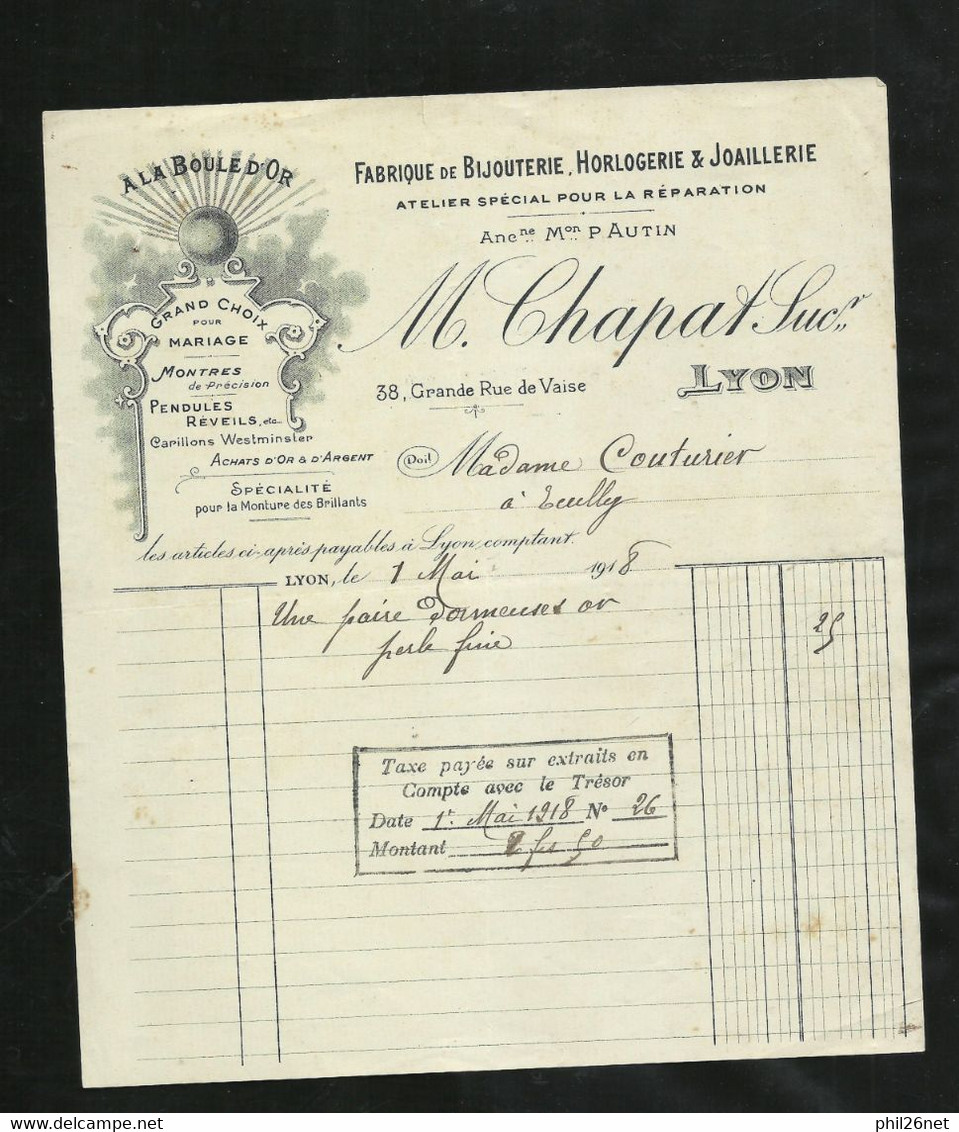 A LA BOULE D'OR
GRAND CHOIX
POUR
MARIAGE
MONTRES
de Précision
PENDULES
RÉVEILS, etc...
Carillons Westminster
ACHATS D'OR & D'ARGENT
SPÉCIALITÉ
pour la Monture des Brillants
FABRIQUE DE BIJOUTERIE, HORLOGERIE & JOAILLERIE
ATELIER SPÉCIAL POUR LA RÉPARATION
Ancne Mon P AUTIN
M. Chapat Sucr
38, Grande Rue de Vaise
LYON
Doit Madame Couturier
à Ecully
les articles ci-après payables à Lyon comptant.
LYON, le 1 Mai 1918
Une paire Dormeuses or
perle fine 25
Taxe payée sur extraits en
Compte avec le Trésor
Date 1r. Mai 1918 No 26
Montant 2 fcs 50
phil26net
phil26net